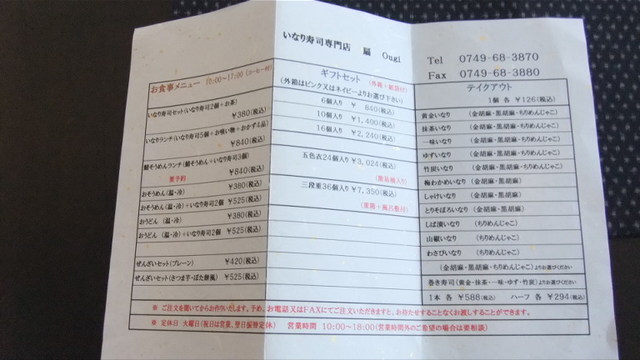 いなり寿司専門店 扇 Ougi
Tel 0749-68-3870
Fax 0749-68-3880
お食事メニュー 10:00~17:00
いなり寿司セット(いなり寿司2個+お茶)
¥380(税込)
いなりランチ(いなり寿司5個+お吸い物+おかず3品)
¥840(税込)
鯖そうめんランチ(鯖そうめん+いなり寿司3個)
要予約 ¥840(税込)
おそうめん(温・冷) ¥380(税込)
おそうめん(温・冷)+いなり寿司2個 ¥525(税込)
おうどん(温・冷) ¥380(税込)
おうどん(温・冷)+いなり寿司2個 ¥525(税込)
ぜんざいセット(プレーン) ¥420(税込)
ぜんざいセット(さつま芋・ばた餅風) ¥525(税込)
ギフトセット
(外箱はピンク又はネイビーよりお選び下さい)
6個入り ¥ 840(税込)
10個入り ¥1,400(税込)
16個入り ¥2,240(税込)
五色衣24個入り ¥3,024(税込)
三段重36個入り ¥7,350(税込)
(重箱+風呂敷付)
テイクアウト
1個 各 ¥126(税込)
黄金いなり (金胡麻・黒胡麻・ちりめんじゃこ)
抹茶いなり (金胡麻・黒胡麻・ちりめんじゃこ)
一味いなり (金胡麻・黒胡麻・ちりめんじゃこ)
ゆずいなり (金胡麻・黒胡麻・ちりめんじゃこ)
竹炭いなり (金胡麻・黒胡麻・ちりめんじゃこ)
梅わかめいなり (金胡麻・黒胡麻)
しゃけいなり (金胡麻・黒胡麻)
とりそぼろいなり (金胡麻・黒胡麻)
しば漬いなり (ちりめんじゃこ)
山椒いなり (ちりめんじゃこ)
わさびいなり (ちりめんじゃこ)
(金胡麻・黒胡麻・ちりめんじゃこ)よりお選びください
巻き寿司(黄金・抹茶・一味・ゆず・竹炭)よりお選びください
1本 各 ¥588(税込) ハーフ 各 ¥294(税込)
※ ご注文を聞いてからお作りいたします。予め、お電話又はFAXにてご注文いただきますと、お待たせすることなくお渡しすることができます。
※ 定休日 火曜日(祝日は営業、翌日振替定休) 営業時間 10:00~18:00(営業時間外のご希望の場合は要相談)